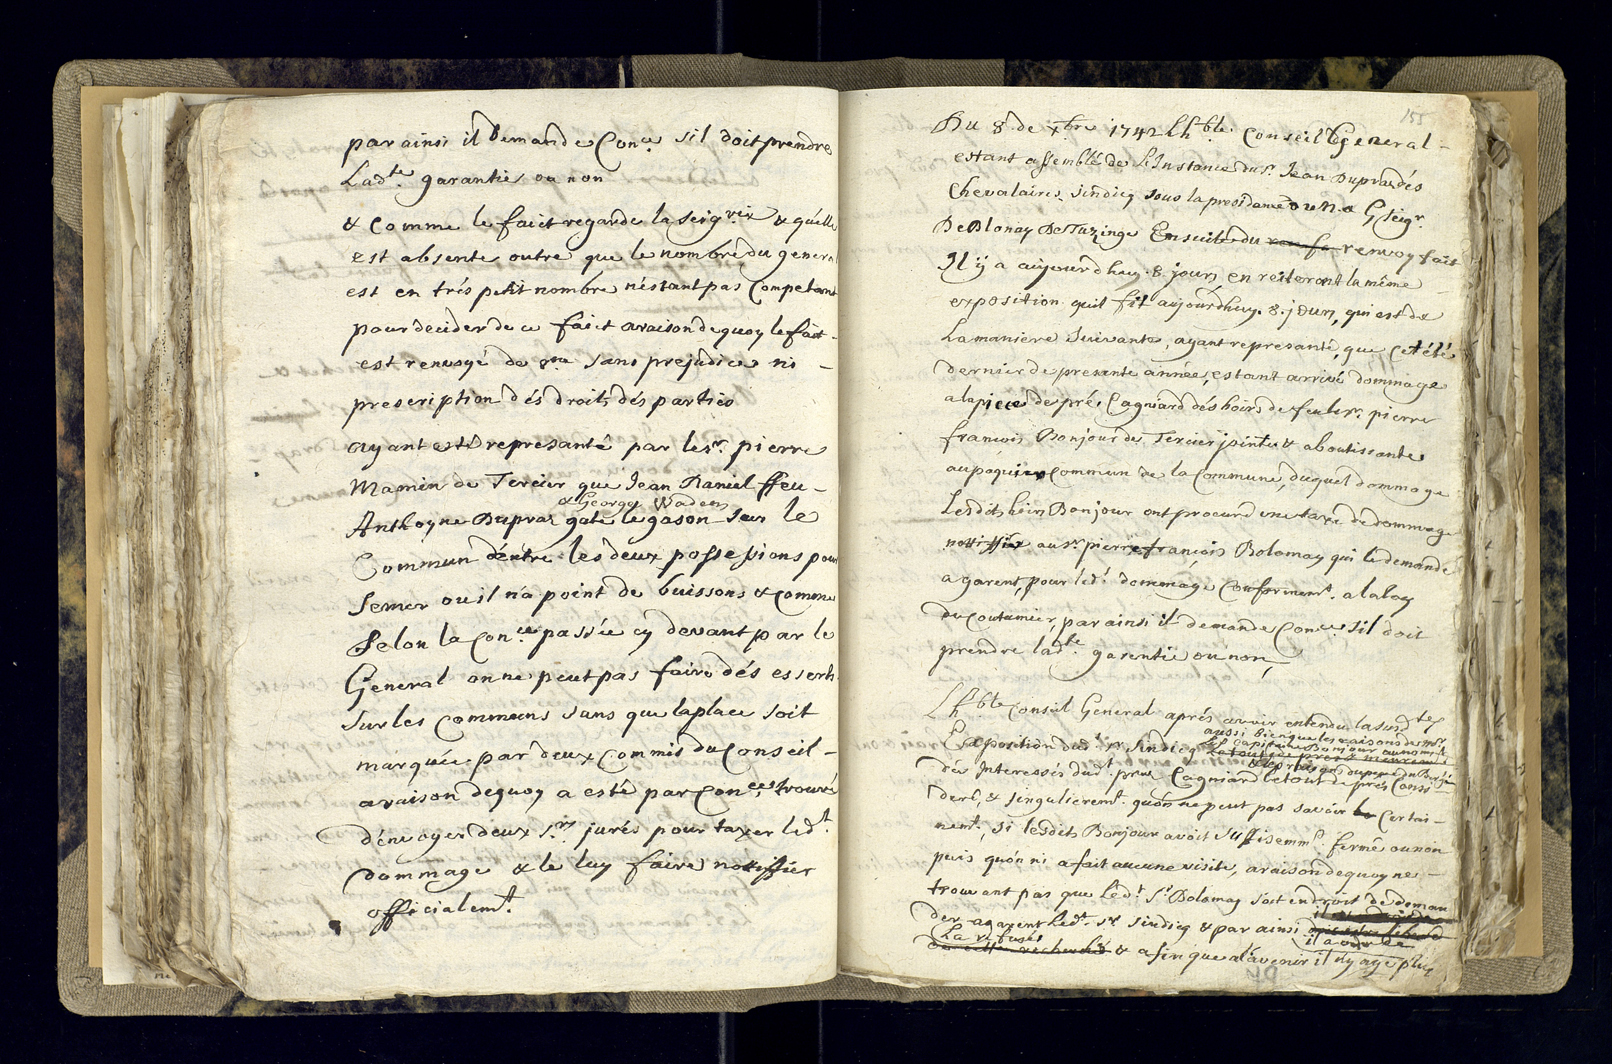 par ainsi il demande Con.ce sil doit prendre
Ladte. garantie ou non
& comme le faict regarde la Seigrie & quelle
est absente outre que le nombre du general
est en très petit nombre n'estant pas Competant
pour decider de ce faict a raison de quoy le fait
est renvoyé de 8ne sans prejudice ni
prescription dés droits dés parties
ayant esté represanté par le sr. pierre
Mamin de Tercier que Jean Daniel ffeu
& George Waden
Anthoyne Dupraz gate le gason sur le
Commun d'entre les deux possessions pour
semer ou il n'a point de buissons & comme
selon la Con.ce passée cy devant par le
General on ne peut pas faire dés esserts
sur les Communs sans que la place soit
marquée par deux Commis du Conseil
a raison de quoy a esté par Con.ce trouvé
d'envoyer deux srs jurés pour taxer led.t
dommage & le luy faire nottiffier
officialemt.
155
Du 8. de Xbre 1742 Lhble. Conseil General
estant assemblé de L'Instance du sr. Jean Dupraz dés
Chevalaires. sindicq sous la presidance de N. G seigr
De Blonay De Tuzinge Ensuite du renvoy fait
Il ÿ a aujourdhuy. 8. jours en reiterant la même
exposition quil fit aujourdhuy. 8. jours, qui est de
La maniere suivante, ayant represanté, que cet été
dernier de presente année, estant arrivé dommage
a la piece de pré Cagniard dés hoirs de feu le sr. pierre
francois Bonjour de Tercier jointe & aboutissante
au paquier Commun de la Commune, duquel dommage
Lesdits hoirs Bonjour ont procuré une taxe de dommage
nottiffiée au sr. pierre francois Bolomay qui le demande
a garent, pour led.t dommage Conforment. a la loy
du Coutumier, par ainsi il demande Con.ce sil doit
prendre ladte garentie ou non,
Lhble Conseil General aprés avoir entendu la susdte
aussi bien que les raisons du sr
Exposition dud.t sr. sindicq Capitaine Bonjour au nom
dés Interessés dud.t pré Cagniard le tout de prés Consi
deré, & singulierent. quon ne peut pas savoir Certai
nemt, si lesdits Bonjour avoit suffisemmt. fermé ou non
puis quón ni a fait aucune visite, a raison de quoy ne
trouvent pas que led.t sr Bolomay soit en droit de deman
der a garent led.t sr sindicq & par ainsi
il a
La refusé
& afin que a l'avenir il n'y aye plus